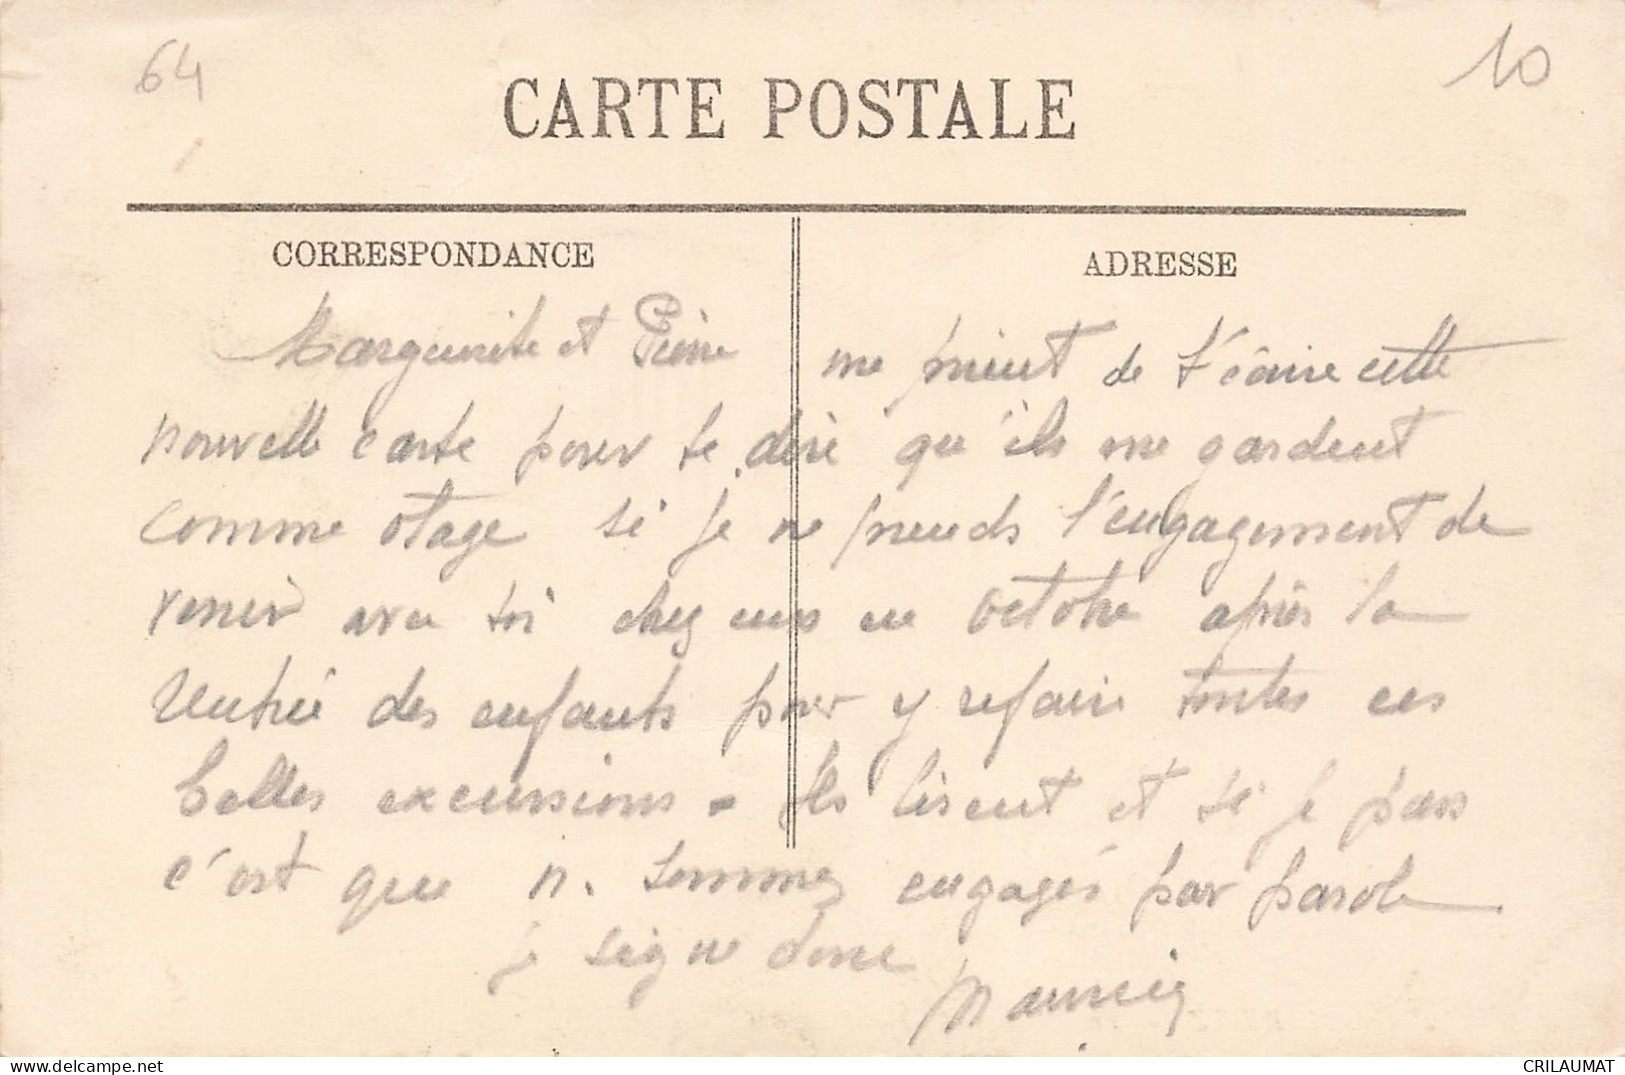 64
10
CARTE POSTALE
CORRESPONDANCE
ADRESSE
Marguerite et Pierre me prient de t'écrire cette
nouvelle carte pour te dire qu'ils me gardent
comme otage si je ne prends l'engagement de
venir avec toi chez eux en octobre après la
rentrée des enfants pour y refaire toutes ces
belles excursions. Ils lisent et si je pars
c'est que n. sommes engagés par parole
je signe donc
delcampe.net
CRILAUMAT